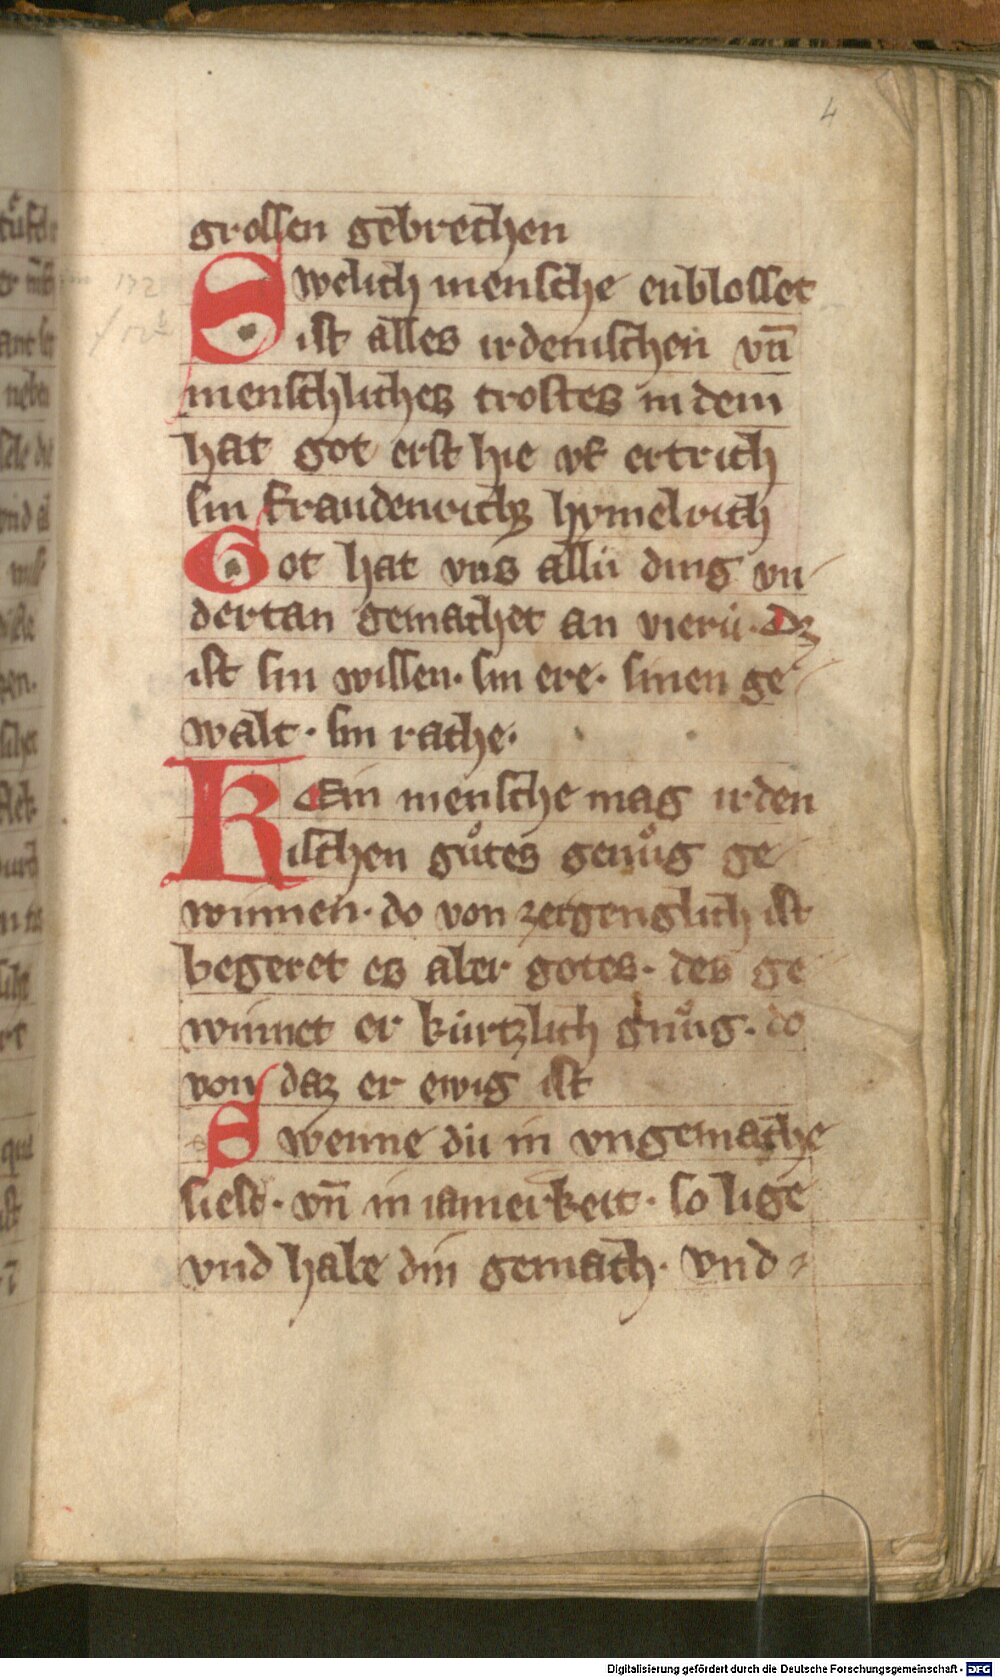 4
grossen gebrechen
Swelich mensche enblosset
ist alles irdenischen vn̄
menschliches trostes in dem
hat got erst hie vf ertrich
sin fraudenrichz hymelrich
Got hat vns allü ding vn
dertan gemachet an vierü. Dz
ist sin wissen. sin ere. sinen ge
walt. sin rache.
Kain mensche mag irden
ischen gůtes genůg ge
winnen. do von zergenglich ist
begeret es aber gotes. des ge
winnet er kürtzlich gnůg. do
von daz er ewig ist
Swenne dü in vngemache
siest. vn̄ in iamerkeit. so lige
vnd habe din gemach. vnd
Digitalisierung gefördert durch die Deutsche Forschungsgemeinschaft - DFG